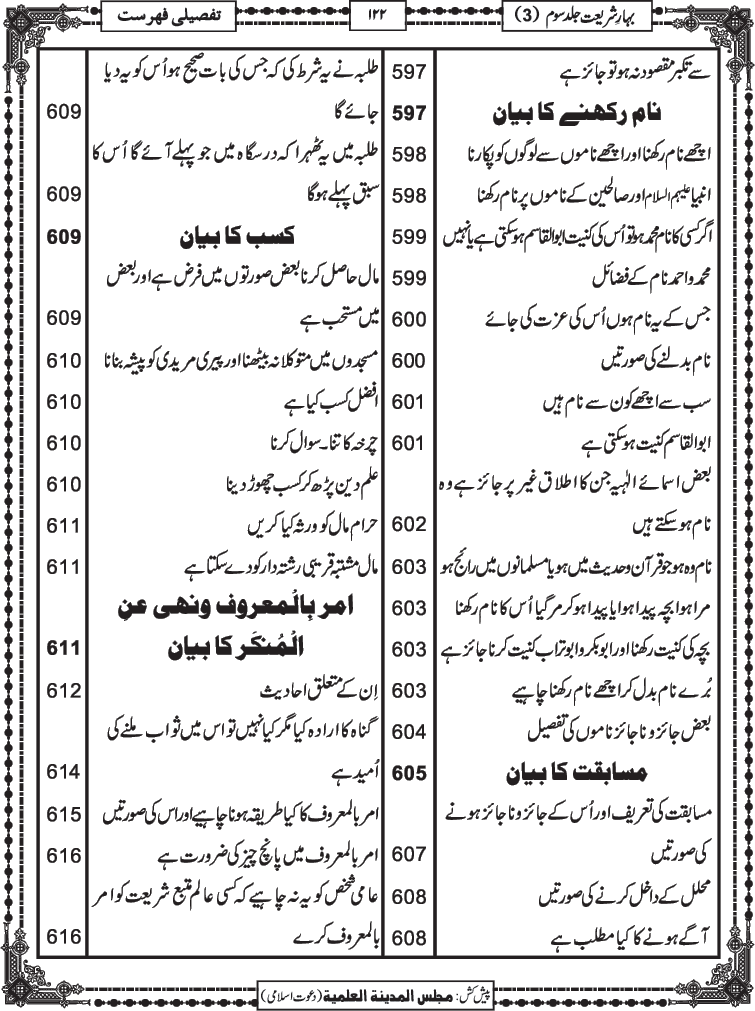 بہار شریعت جلد سوم (3)
۱۲۲
تفصیلی فہرست
سے تکبر مقصود نہ ہو تو جائز ہے 597
نام رکھنے کا بیان 597
اچھے نام رکھنا اور اچھے ناموں سے لوگوں کو پکارنا 598
انبیا علیہم السلام اور صالحین کے ناموں پر نام رکھنا 598
اگر کسی کا نام محمد ہو تو اُس کی کنیت ابوالقاسم ہوسکتی ہے یا نہیں 599
محمد و احمد نام کے فضائل 599
جس کے یہ نام ہوں اُس کی عزت کی جائے 600
نام بدلنے کی صورتیں 600
سب سے اچھے کون سے نام ہیں 601
ابوالقاسم کنیت ہوسکتی ہے 601
بعض اسمائے الٰہیہ جن کا اطلاق غیر پر جائز ہے وہ
نام ہوسکتے ہیں 602
نام وہ ہو جو قرآن و حدیث میں ہو یا مسلمانوں میں رائج ہو 603
مرا ہوا بچہ پیدا ہوا یا پیدا ہو کر مرگیا اُس کا نام رکھنا 603
بچہ کی کنیت رکھنا اور ابوبکر و ابوتراب کنیت کرنا جائز ہے 603
بُرے نام بدل کر اچھے نام رکھنا چاہیے 603
بعض جائز و ناجائز ناموں کی تفصیل 604
مسابقت کا بیان 605
مسابقت کی تعریف اور اُس کے جائز و ناجائز ہونے
کی صورتیں 607
محلل کے داخل کرنے کی صورتیں 608
آگے ہونے کا کیا مطلب ہے 608
طلبہ نے یہ شرط کی کہ جس کی بات صحیح ہو اُس کو یہ دیا
جائے گا 609
طلبہ میں یہ ٹھہرا کہ درسگاہ میں جو پہلے آئے گا اُس کا
سبق پہلے ہوگا 609
کسب کا بیان 609
مال حاصل کرنا بعض صورتوں میں فرض ہے اور بعض
میں مستحب ہے 609
مسجدوں میں متوکلانہ بیٹھنا اور پیری مریدی کو پیشہ بنانا 610
افضل کسب کیا ہے 610
چرخہ کاتنا۔ سوال کرنا 610
علم دین پڑھ کر کسب چھوڑ دینا 610
حرام مال کو ورثہ کیا کریں 611
مال مشتبہ قریبی رشتہ دار کو دے سکتا ہے 611
امر بِالْمعروف ونھی عنِ
الْمُنکَر کا بیان 611
اِن کے متعلق احادیث 612
گناہ کا ارادہ کیا مگر کیا نہیں تو اس میں ثواب ملنے کی
اُمید ہے 614
امر بالمعروف کا کیا طریقہ ہونا چاہیے اور اس کی صورتیں 615
امر بالمعروف میں پانچ چیز کی ضرورت ہے 616
عامی شخص کو یہ نہ چاہیے کہ کسی عالم متبع شریعت کو امر
بالمعروف کرے 616
پیش کش: مجلس المدینۃ العلمیۃ (دعوت اسلامی)